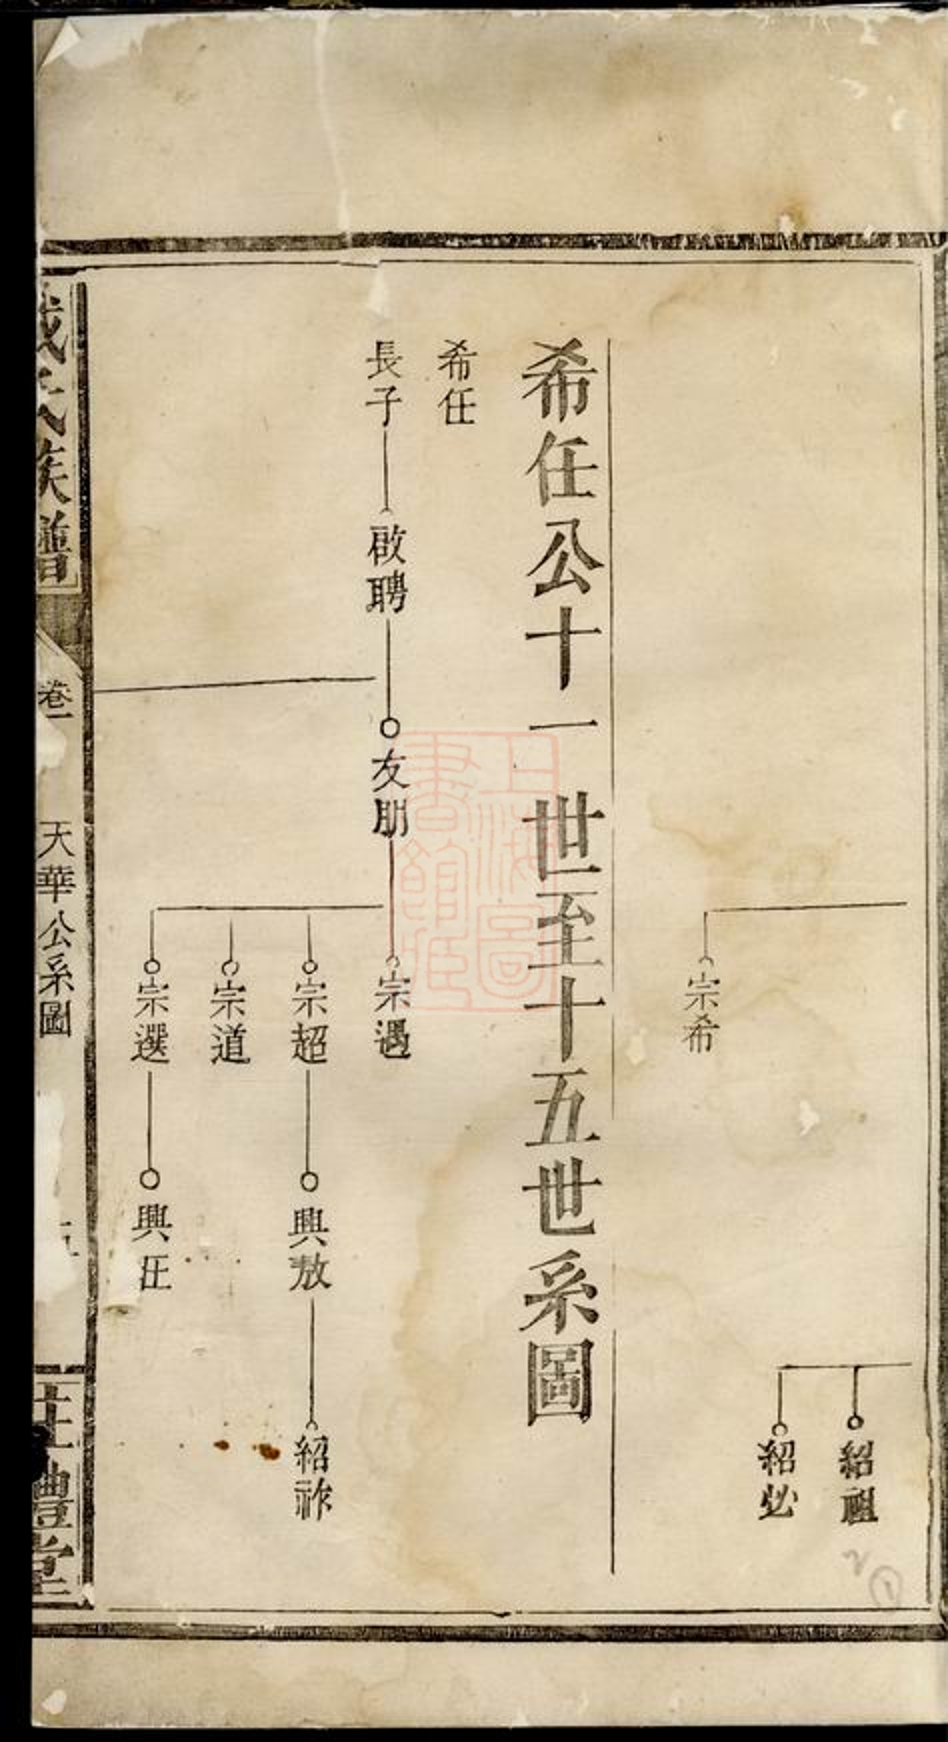 宗希
紹祖
紹必
希任公十一世至十五世系圖
希任
長子
啟聘
友朋
宗遇
宗超
興敖
紹祚
宗道
宗選
興汪
氏族譜
卷一
天華公系圖
禮堂
上海圖書館藏